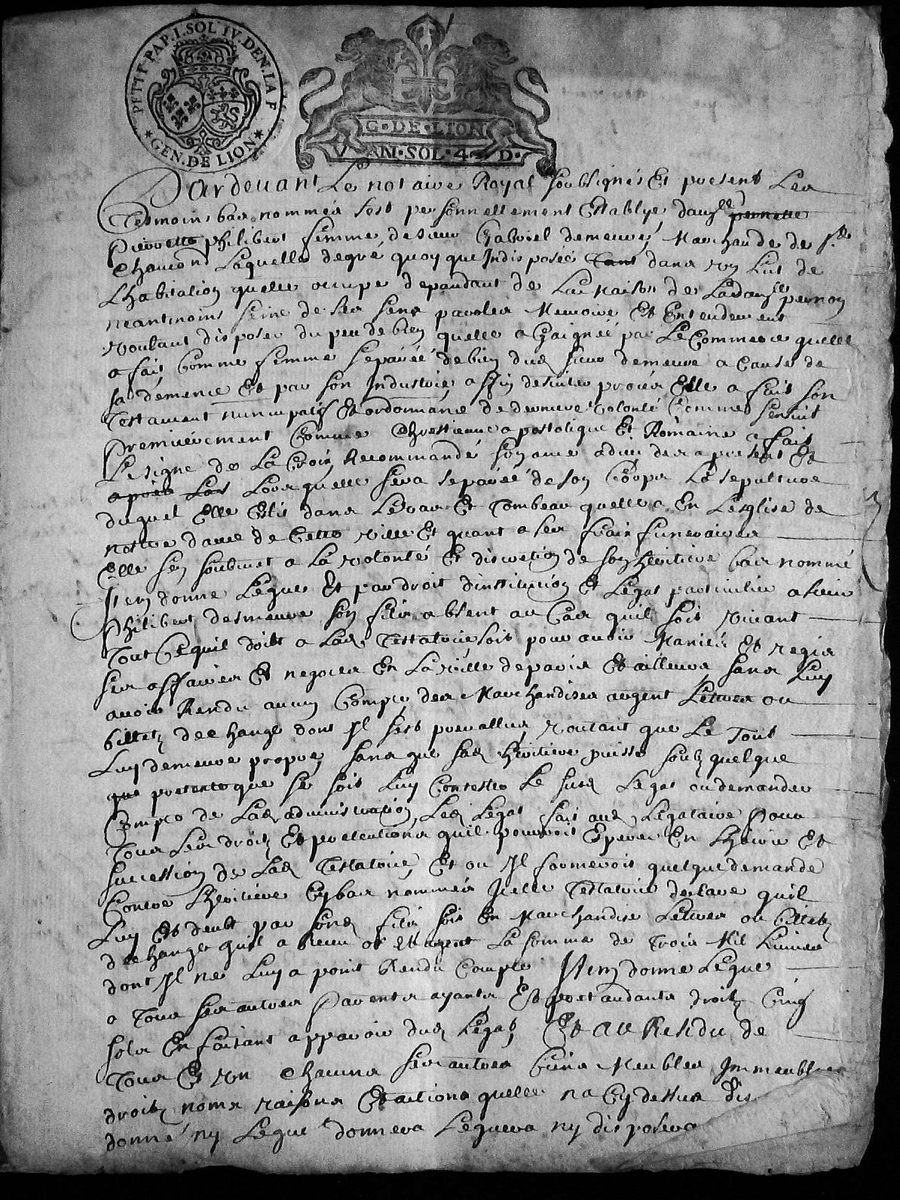 PETIT·PAP·I·SOL·IV·DEN·LA·F
★GEN·DE LION★
G·DE·LION
V AN·SOL·4 D·
Pardevant Le notaire Royal soubsignés Et present Les
Tesmoins bas nommés sest personnellement Establye dauz.lle pernette
Pierrette philibert femme de sieur Gabriel demeuve, Marchande de st
Chamond Laquelle de gré quoy que Indisposée Tant dans son Lict de
Lhabitation quelle occupe dependant de La Maison de Ladauz.lle pernon
neantmoins seine de ses sens parolles Memoire Et Entendement
voulant disposer du peu de bien quelle a Gaigné par Le Commerce quelle
a fait Comme femme separée de bien dud sieur demeuve a Cause de
sa demence Et par son Industrie, affin desviter proces Elle a fait son
Testament nuncupatif Et ordonnance de derniere volonté Comme sensuit
Premierement Comme Chrestienne apostolique Et Romaine a fait
Le signe de La Croix Recommandé son ame a dieu des a present Et
apres Las Lors quelle sera separée de son Corps La sepulture
duquel Elle Eslit dans Le vas Et Tombeau quelle a En Lesglise de
notre dame de Cette ville Et quant a ses frais funeraires
Elle sen soubmet a La volonté Et discretion de son heritiere bas nommé
Item donne Legue Et par droit dinstitution Et Legat particulier a sieur
Philibert desmeuve son fils absent au Cas quil soit vivant
Tout Ce quil doibt a Lad Testatrice soit pour avoir Maniés Et Regis
ses affaires Et negoces En La ville de paris Et ailleurs sans Luy
avoir Rendu aucun Compte des Marchandises argent Lettres ou
billetz de change dont Il sest prevallus, voulant que Le Tout
Luy demeure propre, sans que sad heritiere puisse soubz quelque
que pretexte que se soit Luy Contester Le susd Legat ou demander
Compte de Lad administration, Led Legat fait aud Legataire Pour
Tous ses droitz Et pretentions quil pourroit Esperer En Lhoirie Et
succession de Lad Testatrice, Et ou Il formeroit quelque demande
Contre Lheritiere Cy bas nommée Icelle Testatrice declare quil
Luy Est deubt par sond fils soit En Marchandise Lettres ou billetz
de change quil a Receu ou Et argent La somme de Trois Mil Livres
dont Il ne Luy a point Rendu Compte Item donne Legue
a Tous ses autres Parents ayants Et pretandants droitz Cinq
solz En faisant apparoir dud Legat, Et au Residu de
Tous Et Un Chacuns ses autres biens Meubles Immeubles
droitz noms raisons Et actions quelle na Cy dessus dis
donné ny Legué donnera Leguera ny disposera